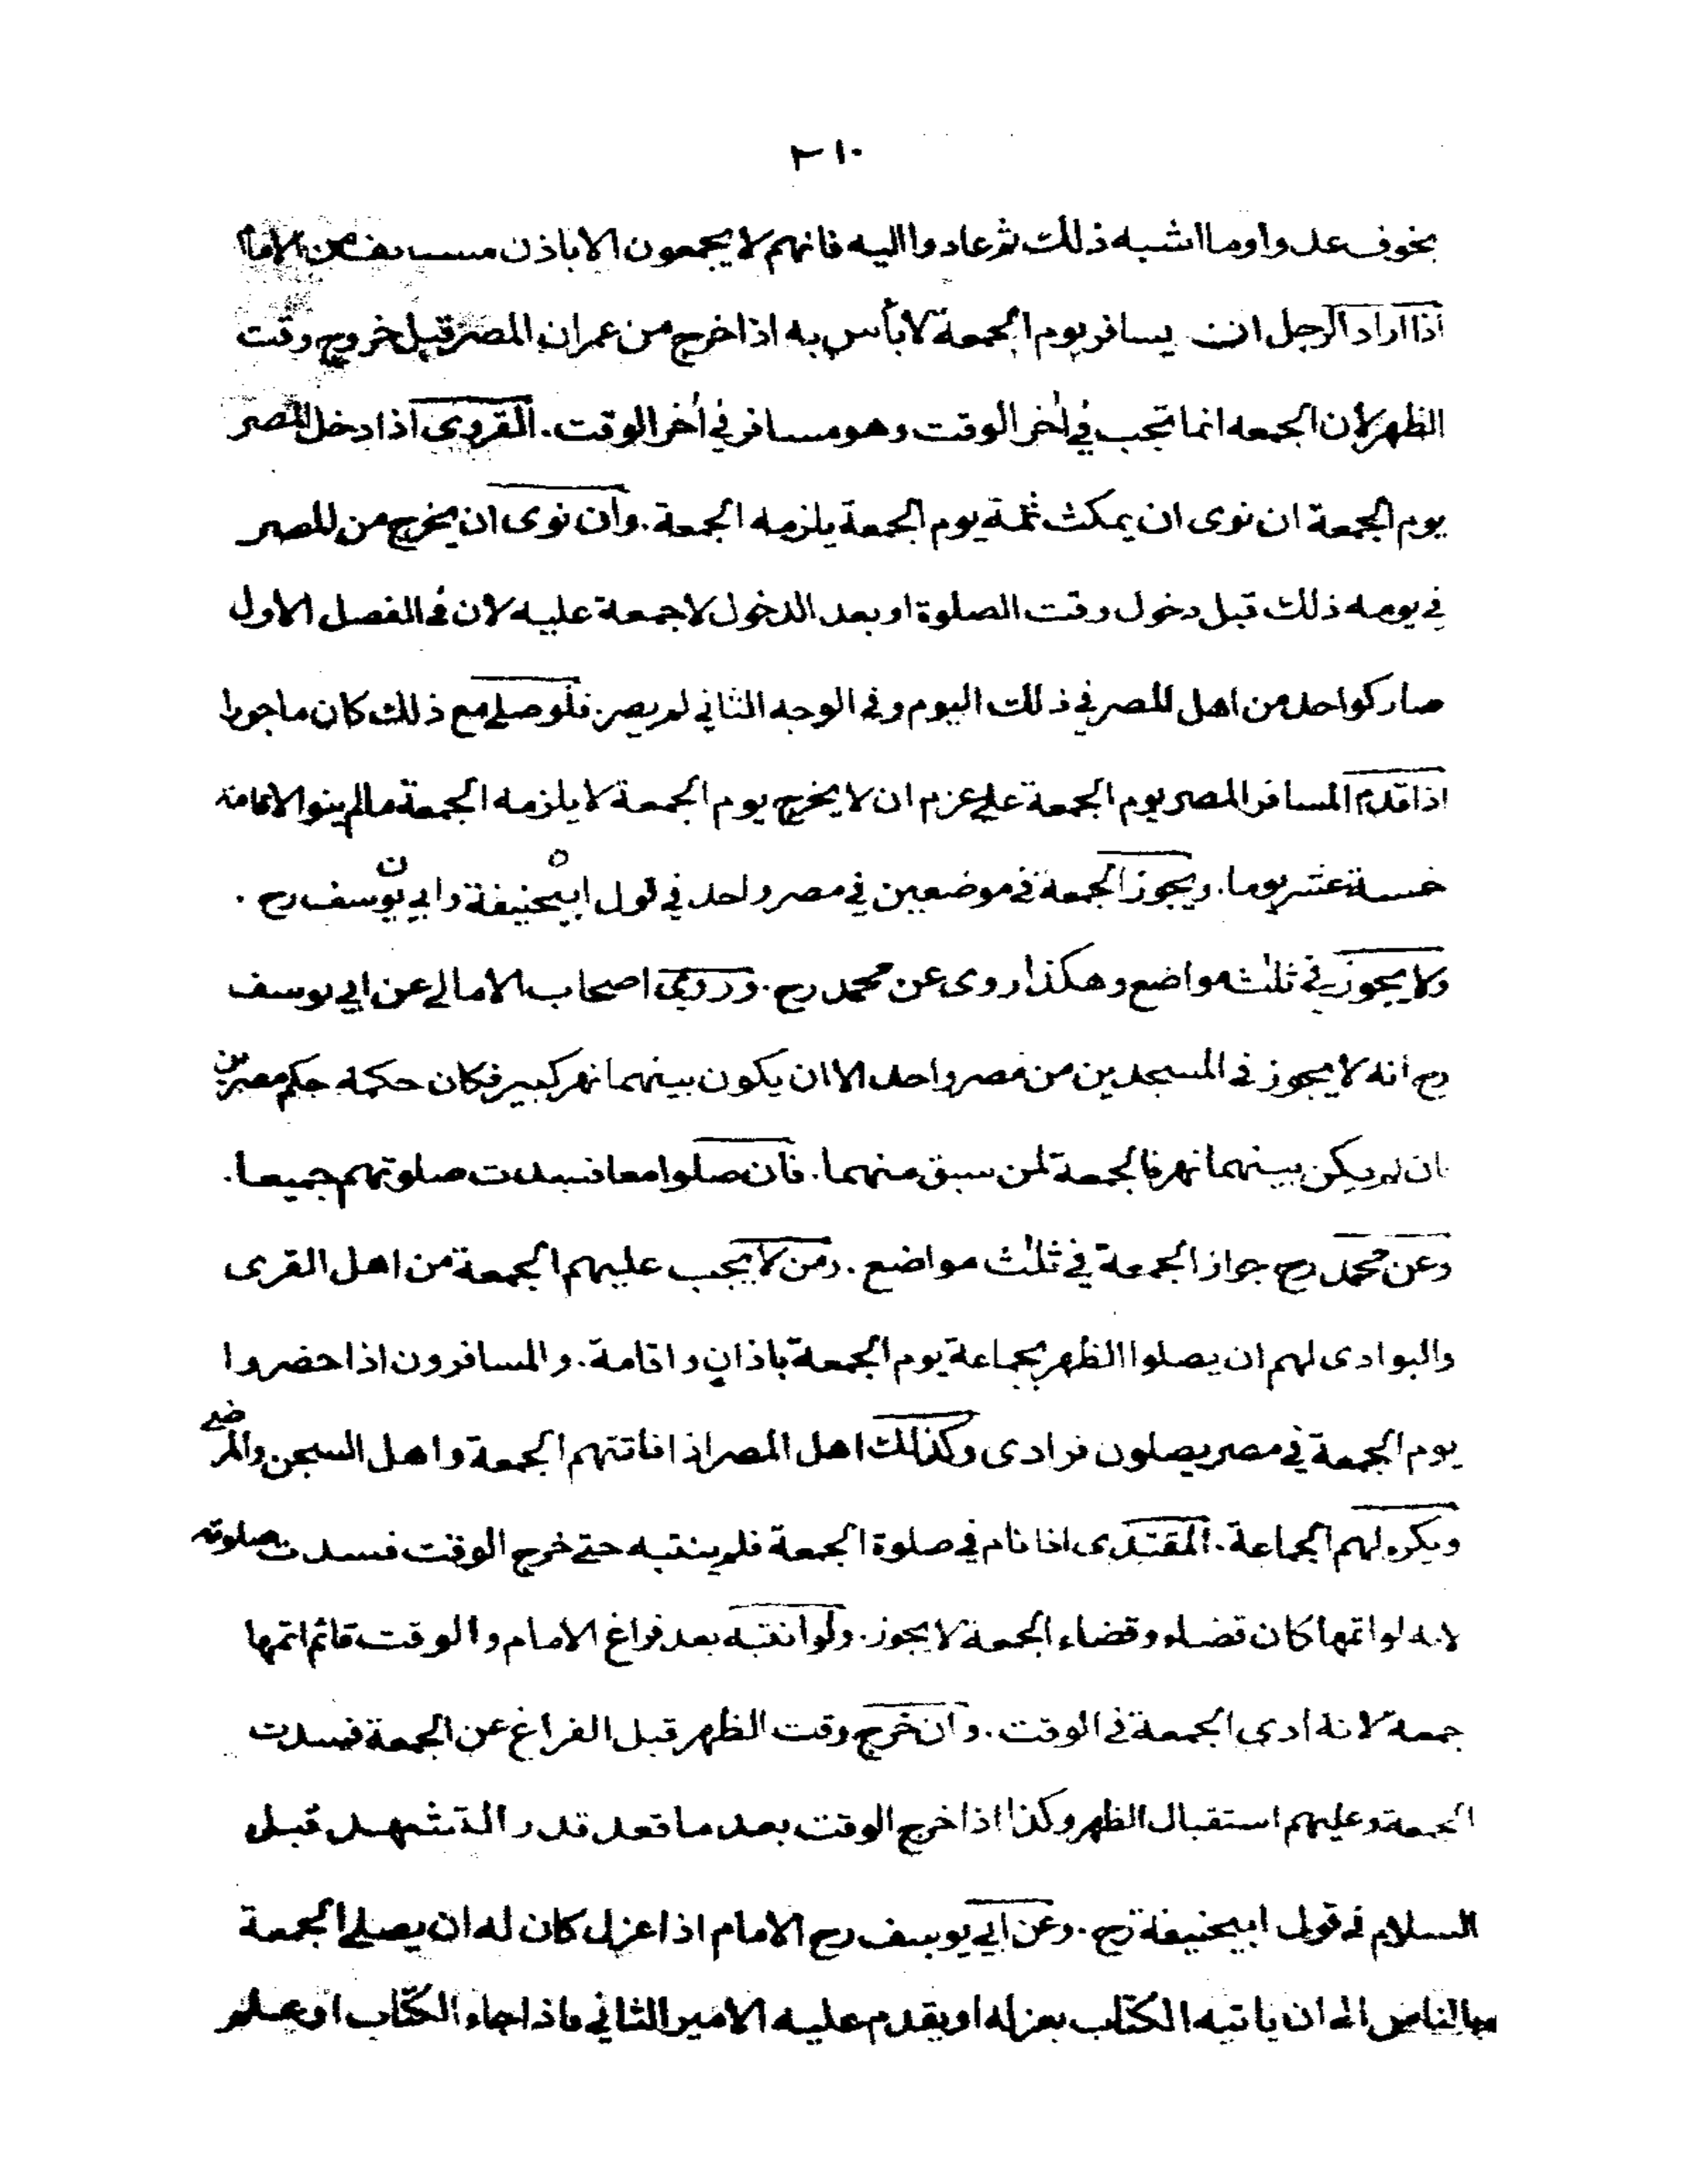 ٢١٠
بخوف عدو اوما اشبه ذلك ثم عادوا اليه فانهم لا يجمعون الا باذن مستانف من الامام
اذا اراد الرجل ان يسافر يوم الجمعة لا بأس به اذا خرج من عمران المصر قبل خروج وقت
الظهر لان الجمعه انما تجب في اٰخر الوقت وهو مسافر في اٰخر الوقت. القروى اذا دخل المصر
يوم الجمعة ان نوى ان يمكث ثمة يوم الجمعة يلزمه الجمعة. وان نوى ان يخرج من المصر
في يومه ذلك قبل دخول وقت الصلوة او بعد الدخول لا جمعة عليه لان في الفصل الاول
صار كواحد من اهل المصر في ذلك اليوم وفي الوجه الثاني لم يصر. فلو صلى مع ذلك كان ماجورا
اذا قدم المسافر المصر يوم الجمعة على عزم ان لا يخرج يوم الجمعة لا يلزمه الجمعة مالم ينو الاقامة
خمسة عشر يوما. ويجوز الجمعة في موضعين في مصر واحد في قول ابيحنيفة وابي يوسف رح.
ولا يجوز في ثلٰثه مواضع وهكذا روى عن محمد رح. وروى اصحاب الامالي عن ابي يوسف
رح انه لا يجوز في المسجدين من مصر واحد الا ان يكون بينهما نهر كبير فكان حكمه حكم مصرين
ان لم يكن بينهما نهر فالجمعة لمن سبق منهما. فان صلوا معا فسدت صلوتهم جميعا.
وعن محمد رح جواز الجمعة في ثلٰث مواضع. ومن لا يجب عليهم الجمعة من اهل القرى
والبوادى لهم ان يصلوا الظهر بجماعة يوم الجمعة باذان واقامة. والمسافرون اذا حضروا
يوم الجمعة في مصر يصلون فرادى وكذلك اهل المصر اذا فاتتهم الجمعة واهل السجن والمرضى
ويكره لهم الجماعة. المقتدى اذا نام في صلوة الجمعة فلم ينتبه حتى خرج الوقت فسدت صلوته
لانه لو اتمها كان قضاء وقضاء الجمعة لا يجوز. ولو انتبه بعد فراغ الامام والوقت قائم اتمها
جمعه لانه ادى الجمعة في الوقت. وان خرج وقت الظهر قبل الفراغ عن الجمعة فسدت
الجمعة وعليهم استقبال الظهر وكذا اذا خرج الوقت بعد ما قعد قدر التشهد قبل
السلام في قول ابيحنيفة رح. وعن ابي يوسف رح الامام اذا عزل كان له ان يصلي الجمعة
بالناس الى ان ياتيه الكتاب بعزله او يقدم عليه الامير الثاني فاذا جاء الكتاب او علم